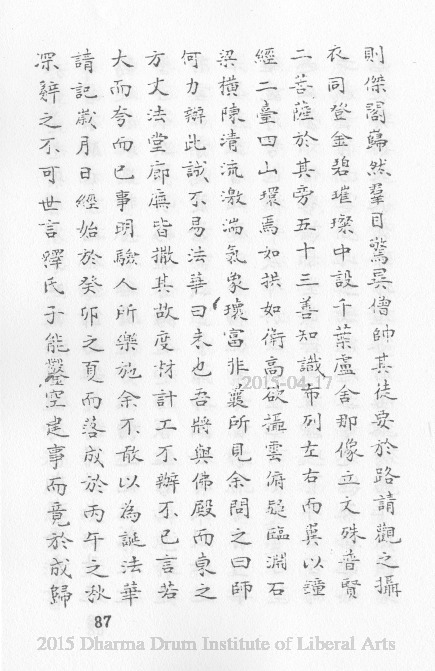 則傑閣巋然羣目驚異僧帥其徒要於路請觀之攝
衣同登金碧璀璨中設千葉盧舍那像立文殊普賢
二菩薩於其旁五十三善知識布列左右而翼以鐘
經二臺四山環焉如拱如衛高欲攝雲俯疑臨淵石
梁橫陳清流激湍氣象瓌富非曩所見余問之曰師
何力辦此誠不易法華曰未也吾將與佛殿而東之
方丈法堂廊廡皆撤其故度材計工不辦不已言若
大而夸而已事明驗人所樂施余不敢以為誕法華
請記歲月日經始於癸卯之夏而落成於丙午之秋
深辭之不可世言釋氏子能鑿空建事而竟於成歸
87
2015-04-17
2015 Dharma Drum Institute of Liberal Arts